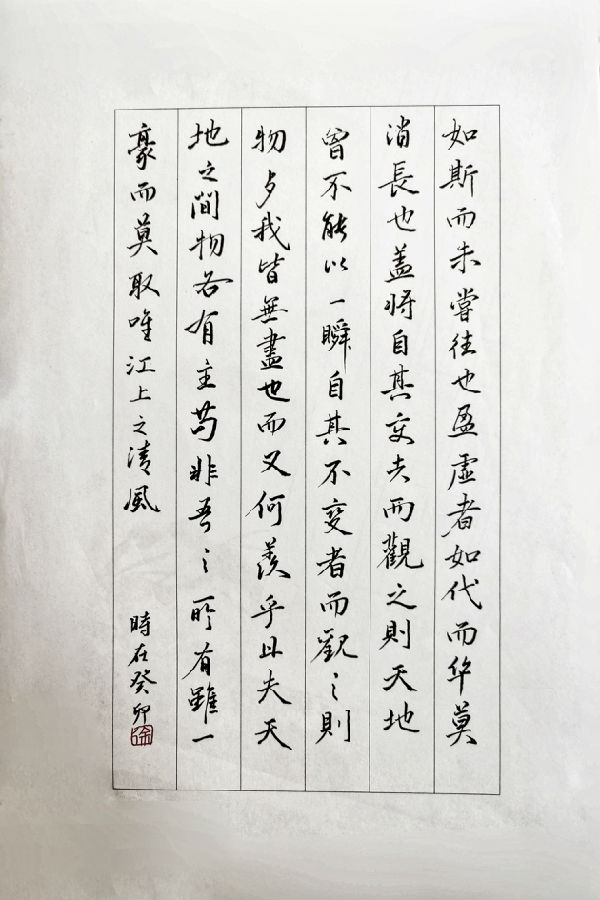 如斯而未嘗往也盈虛者如代而卒莫
消長也蓋將自其变者而觀之則天地
曾不能以一瞬自其不變者而觀之則
物與我皆無盡也而又何羨乎且夫天
地之間物各有主苟非吾之所有雖一
豪而莫取唯江上之清風
時在癸卯
徐